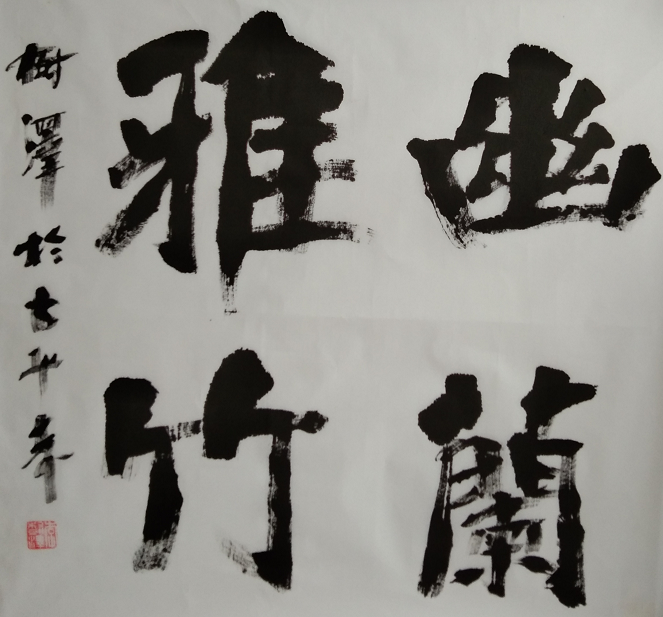 幽蘭
雅竹
樹澤於古不年